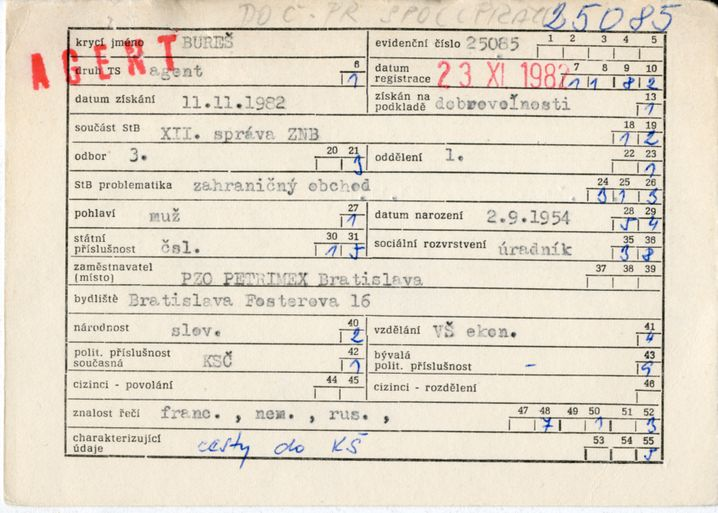 DOČ. PR SPOLUPRÁCI 25085
krycí jméno BUREŠ evidenční číslo 25085 1 2 3 4 5
AGENT
druh TS agent 6 1 datum registrace 23 XI 1982 7 8 9 10 1 1 8 2
datum získání 11.11.1982 získán na podkladě dobrovoľnosti 13 1
součást StB XII. správa ZNB 18 19 1 2
odbor 3. 20 21 3 oddělení 1. 22 23 1
StB problematika zahraničný obchod 24 25 26 3 1 3
pohlaví muž 27 1 datum narození 2.9.1954 28 29 5 4
státní příslušnost čsl. 30 31 1 5 sociální rozvrstvení úradník 35 36 3 8
zaměstnavatel (místo) PZO PETRIMEX Bratislava 37 38 39
bydliště Bratislava Fosterova 16
národnost slov. 40 2 vzdělání VŠ ekon. 41 4
polit. příslušnost současná KSČ 42 1 bývalá polit. příslušnost - 43 9
cizinci - povolání 44 45 cizinci - rozdělení 46
znalost řečí franc. , nem. , rus. , 47 48 49 50 51 52 7 1 3
charakterizující údaje cesty do KŠ 53 54 55 5